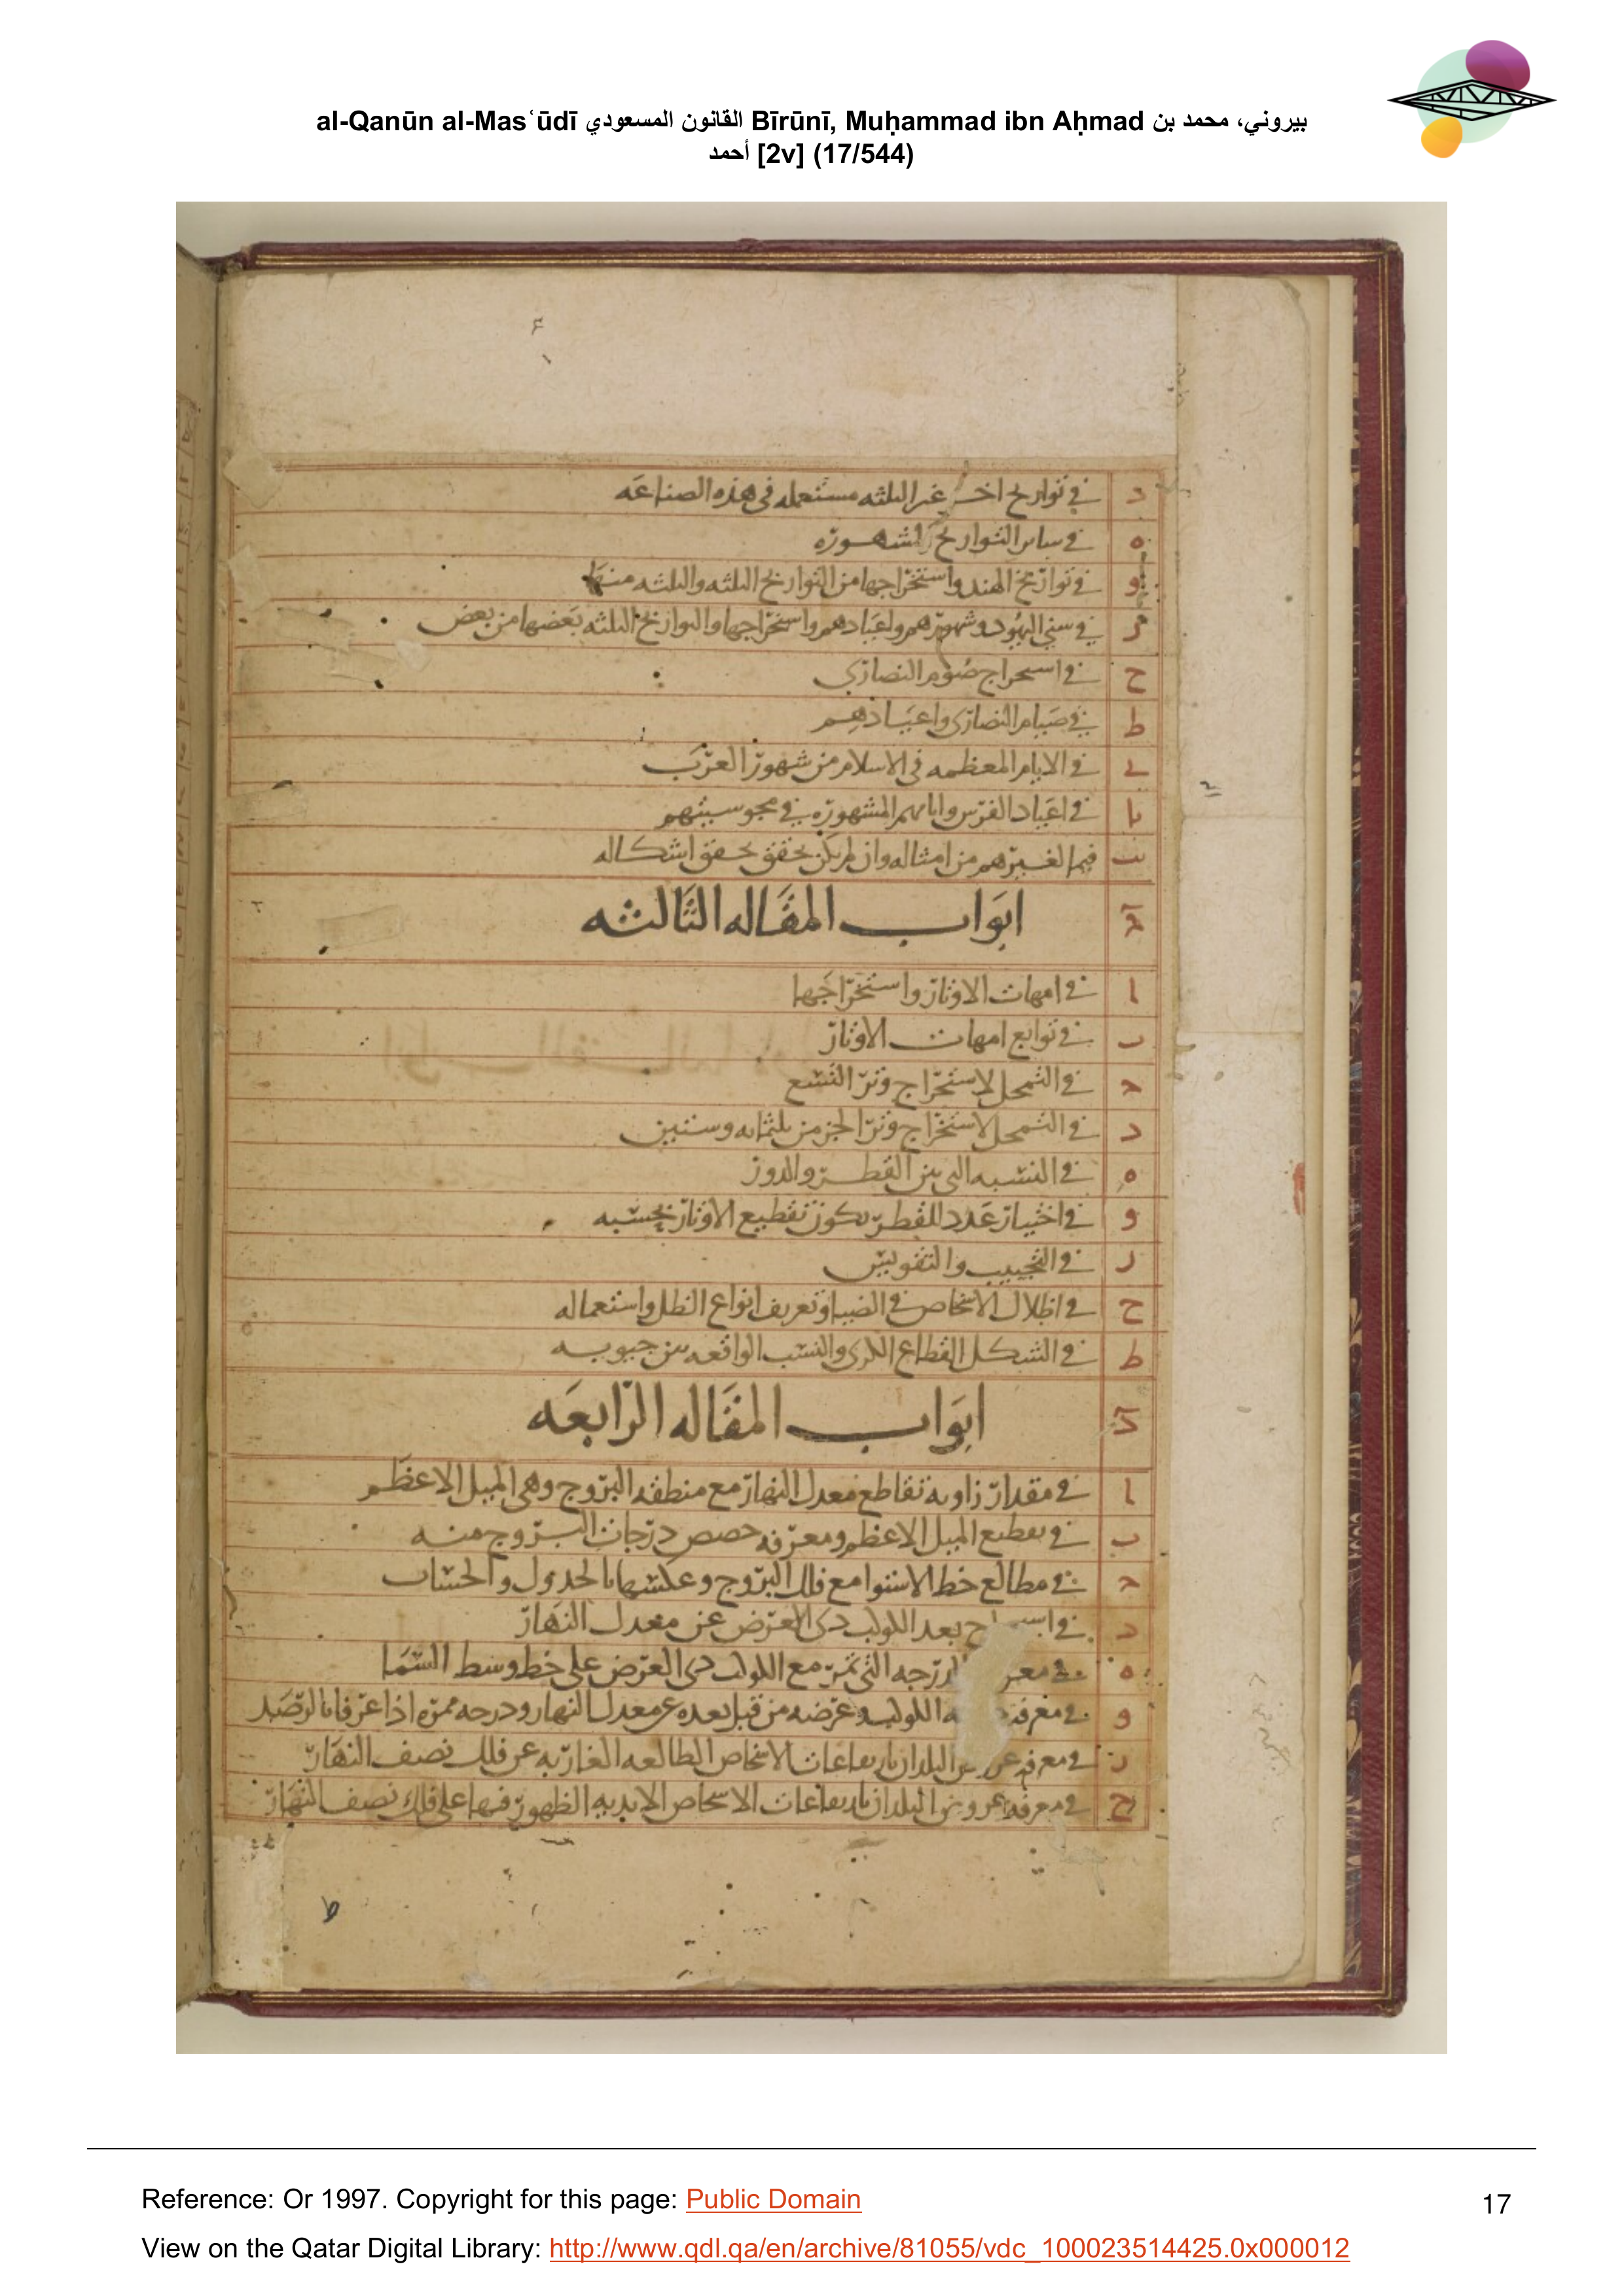 al-Qanūn al-Masʿūdī القانون المسعودي Bīrūnī, Muḥammad ibn Aḥmad بيروني، محمد بن
أحمد [2v] (17/544)
د في تواريخ اخر غير الثلثه مستعمله في هذه الصناعه
ه في ساير التواريخ المشهوره
و في تواريخ الهند واستخراجها من التواريخ الثلثه والثلثه منها
ز في سني اليهود وشهورهم واعيادهم واستخراجها والتواريخ الثلثه بعضها من بعض
ح في استخراج صوم النصاري
ط في صيام النصاري واعيادهم
ي في الايام المعظمه في الاسلام من شهور العرب
يا في اعياد الفرس وايامهم المشهوره في مجوسيتهم
يب فيما لغيرهم من امثاله وان لم يكن تحقق تحقق اشكاله
ج ابواب المقاله الثالثه
ا في امهات الاوتار واستخراجها
ب في توابع امهات الاوتار
ج في التمحل لاستخراج وتر التسع
د في التمحل لاستخراج وتر الجز من ثلثمايه وستين
ه في النسبه التي بين القطر والدور
و في اختيار عدد للقطر يكون تقطيع الاوتار بحسبه
ز في التجييب والتقويس
ح في اظلال الاشخاص في الضيا وتعريف انواع الظل واستعماله
ط في الشكل القطاع الكري والنسب الواقعه بين جيوبه
د ابواب المقاله الرابعه
ا في مقدار زاويه تقاطع معدل النهار مع منطقه البروج وهي الميل الاعظم
ب في تقطيع الميل الاعظم ومعرفه حصص درجات البروج منه
ج في مطالع خط الاستوا مع فلك البروج وعكسها بالجدول والحساب
د في بعد الكوكب ذي العرض عن معدل النهار
ه في الدرجه التي تمر مع الكوكب ذي العرض علي خط وسط السما
و في معرفه الكوكب وعرضه من قبل بعده عن معدل النهار ودرجه ممره اذا عرفا بالرصد
ز في معرفه عروض البلدان بارتفاعات الاشخاص الطالعه الغاربه عن فلك نصف النهار
ح في معرفه عروض البلدان بارتفاعات الاشخاص الابديه الظهور فيها علي فلك نصف النهار
Reference: Or 1997. Copyright for this page: Public Domain
17
View on the Qatar Digital Library: http://www.qdl.qa/en/archive/81055/vdc_100023514425.0x000012